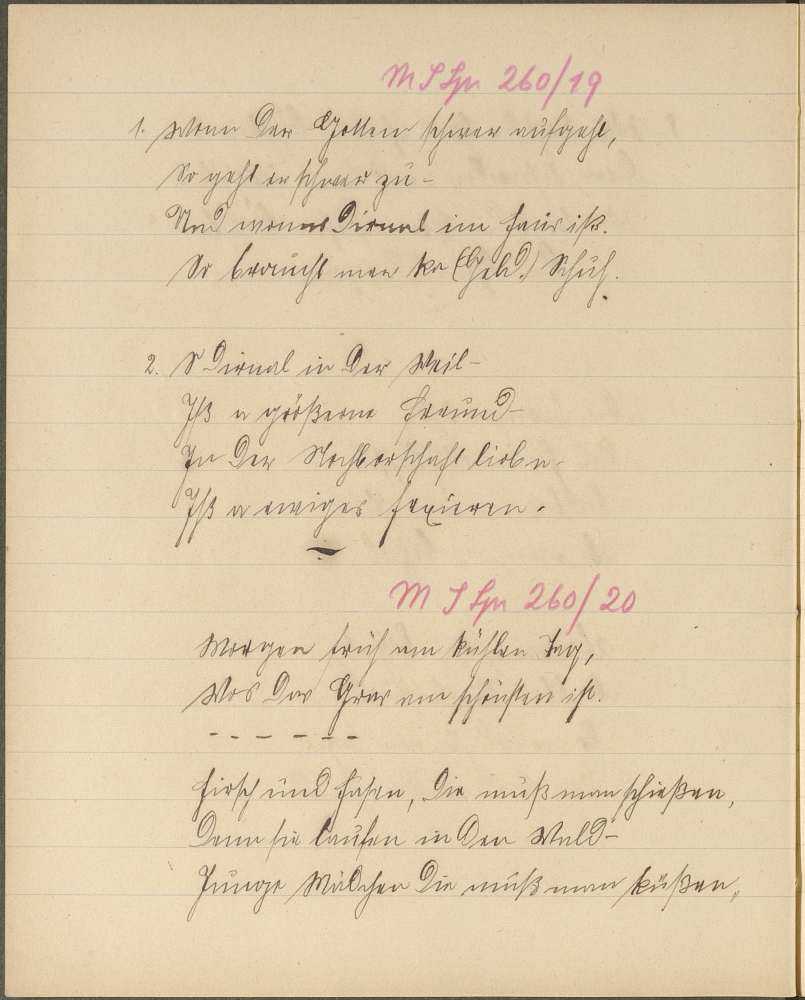 M S Spr 260/19
1. Wenn der Gottern schwer aufgeht,
So geht er schwer zu -
Und wenns Dirnal im Haus ist.
So braucht man ka (Geld.) Schuh.
2. S Dirnal in der Weil -
Ißt a größerne Freund -
In der Nachborschaft lieben
Ißt a ewiges fexieren.
M S Spr 260/20
Morgen früh am kühlen Tag,
Wos das Gras am schönsten ist.
- - - - - -
Hirsch und Hasen, die muß man schießen,
Denn sie laufen in den Wald -
Junge Mädchen die muß man küßen,